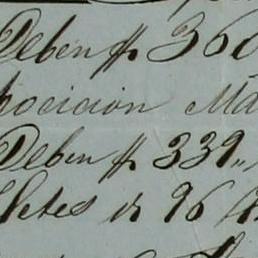 Deben $ 360
pocicion Ma
Deben $ 339,,
fletes de 96